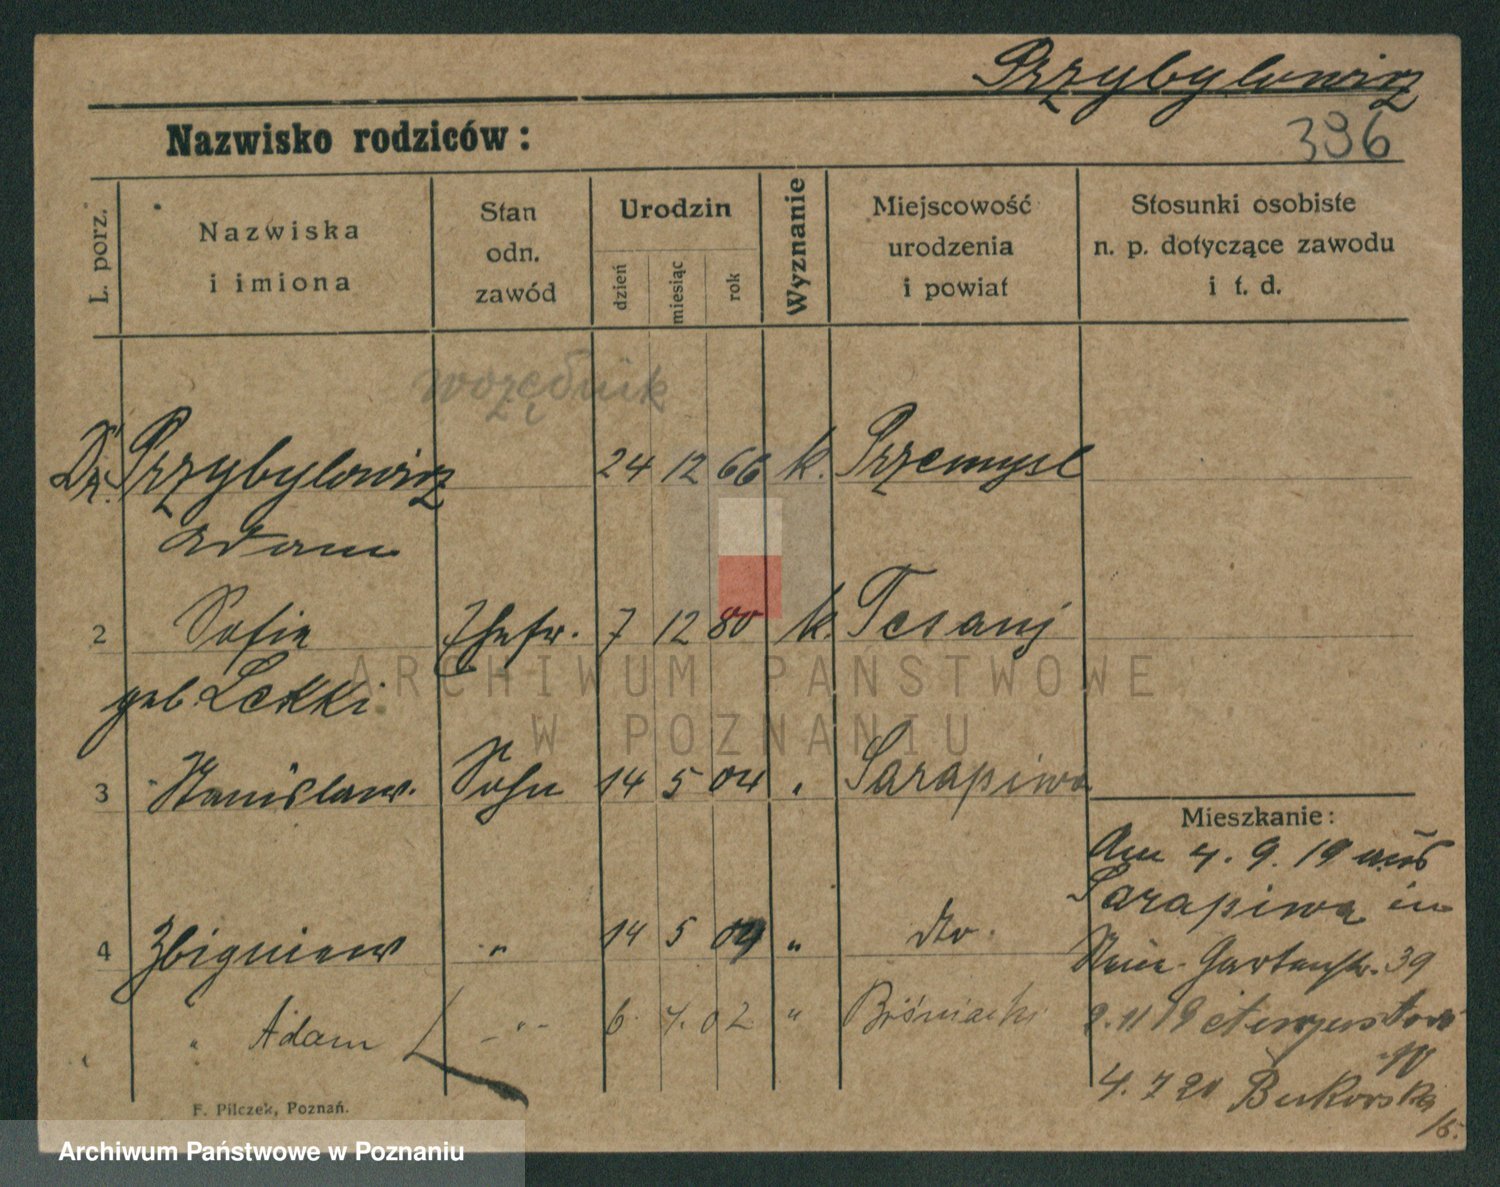 Przybylowicz
396
Nazwisko rodziców:
L. porz.
Nazwiska i imiona
Stan odn. zawód
Urodzin
dzień miesiąc rok
Wyznanie
Miejscowość urodzenia i powiat
Stosunki osobiste n. p. dotyczące zawodu i t. d.
Dr. Przybylowicz 24 12 66 k. Przemysl
Adam
2 Sofie Ehefr. 7 12 80 k.
geb Lekki
3 Stanislaw. Sohn 14 5 04 " Sarapiwa
4 Zbigniew " 14 5 09 " dto.
" Adam " 6. 7. 02 "
Mieszkanie:
Am 4. 9. 19 aus
Sarapiwa in
Gartenstr. 39
2.11 19
4. 7 20 Bukowska
15.
F. Pilczek, Poznań.
ARCHIWUM PAŃSTWOWE
W POZNANIU
Archiwum Państwowe w Poznaniu